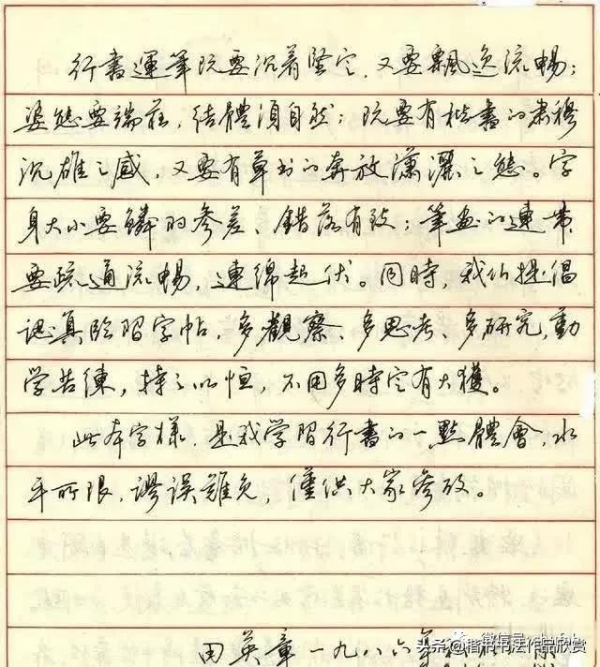 行書運筆既要沉着堅定,又要飄逸流暢;
姿態要端莊,結體須自然;既要有楷書的肅穆
沉雄之感,又要有草书的奔放瀟灑之態。字
身大小要鱗羽參差、錯落有致;筆画的連帶
要疏通流暢,連綿起伏。同時,我们提倡
認真臨習字帖,多觀察、多思考、多研究,勤
学苦練,持之以恒,不用多時定有大獲。
此本字様,是我学習行書的一點體會,水
平所限,謬误難免,僅供大家參攷。
田英章一九八六年